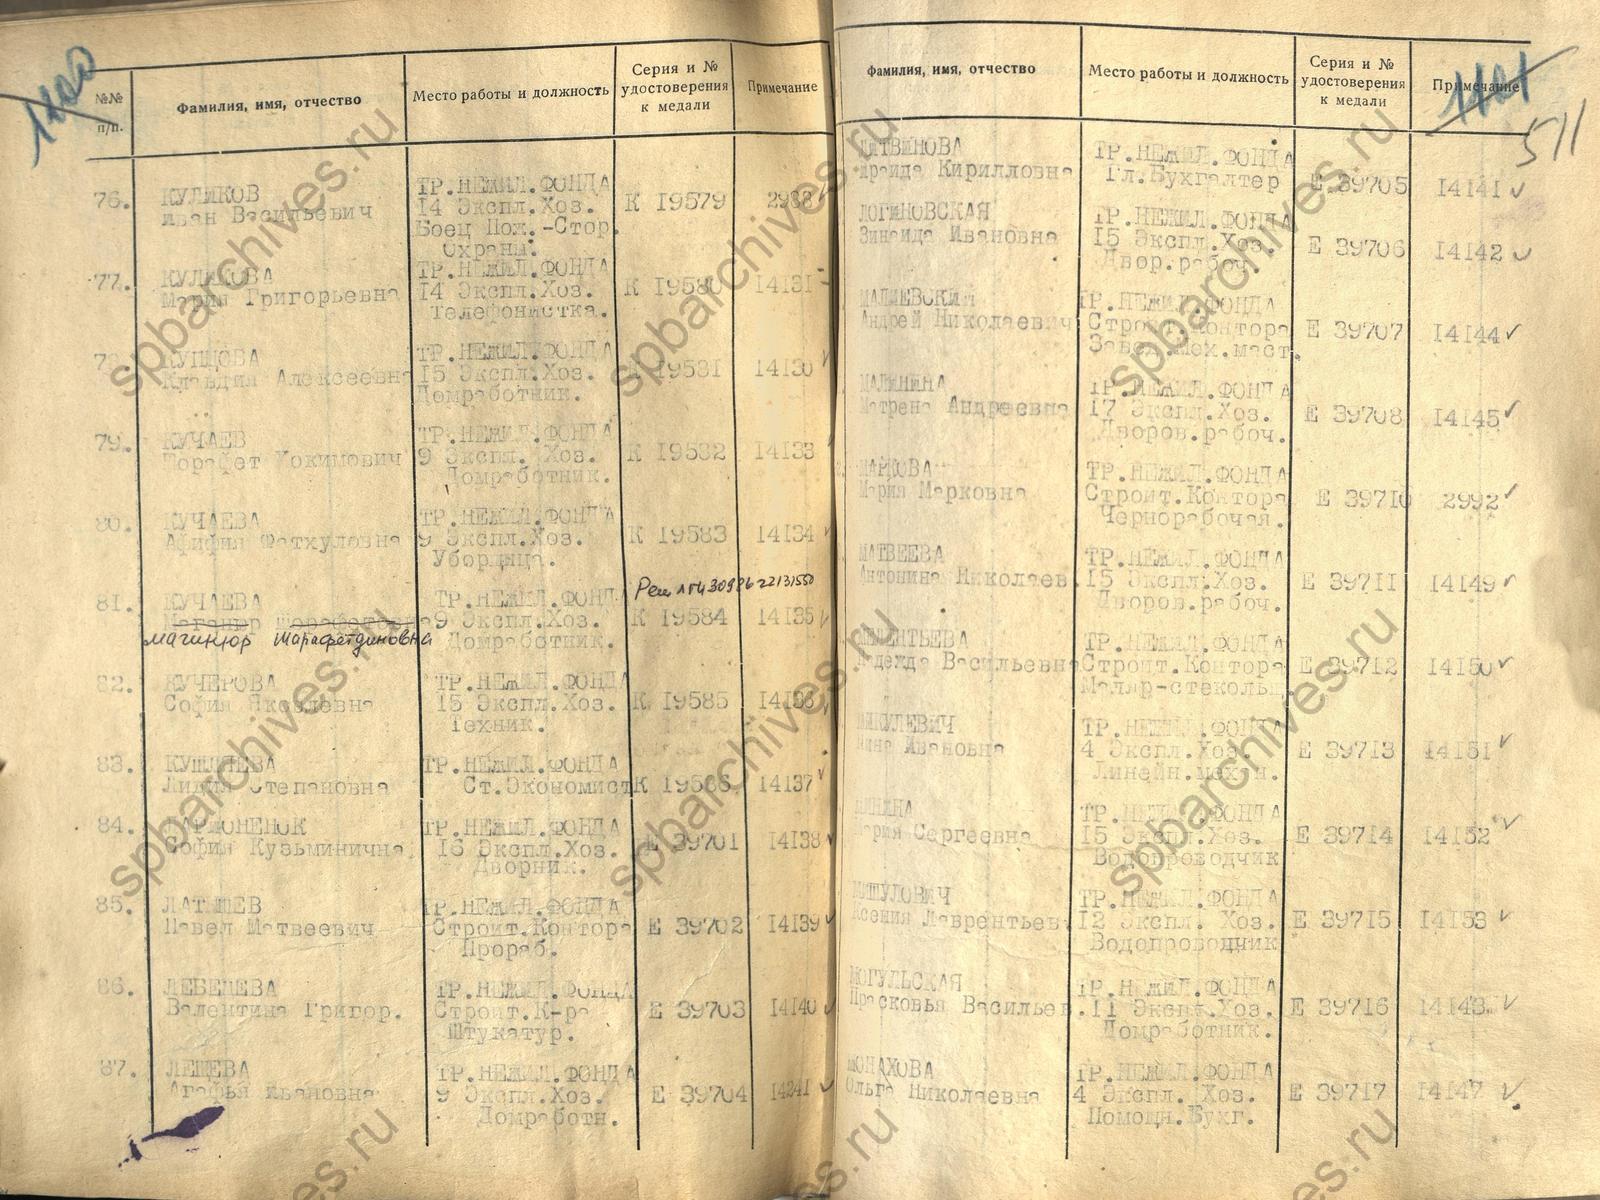 1400
№№ п/п.
Фамилия, имя, отчество
Место работы и должность
Серия и № удостоверения к медали
Примечание
76. КУЛИКОВ
Иван Васильевич
ТР.НЕЖИЛ.ФОНДА
14 Экспл.Хоз.
Боец Пож.-Стор.
Охраны.
К 19579
2988
77. КУЛИКОВА
Мария Григорьевна
ТР.НЕЖИЛ.ФОНДА
14 Экспл.Хоз.
Телефонистка.
К 19580
14131
78. КУПЦОВА
Клавдия Алексеевна
ТР.НЕЖИЛ.ФОНДА
15 Экспл.Хоз.
Домработник.
К 19581
14130
79. КУЧАЕВ
ТР.НЕЖИЛ.ФОНДА
9 Экспл. Хоз.
Домработник.
К 19582
14133
80. КУЧАЕВА
Афифия Фатхуловна
ТР.НЕЖИЛ.ФОНДА
9 Экспл.Хоз.
Уборщица.
К 19583
14134
81. КУЧАЕВА
Магинюр Шарафетдиновна
ТР.НЕЖИЛ.ФОНДА
9 Экспл.Хоз.
Домработник.
К 19584
14135
82. КУЧЕРОВА
София Яковлевна
ТР.НЕЖИЛ.ФОНДА
15 Экспл.Хоз.
Техник.
К 19585
14136
83.
Лидия Степановна
ТР.НЕЖИЛ.ФОНДА
Ст.Экономист
К 19586
14137
84.
София Кузьминична
ТР.НЕЖИЛ.ФОНДА
16 Экспл.Хоз.
Дворник.
Е 39701
14138
85. ЛАТЫШЕВ
Павел Матвеевич
ТР.НЕЖИЛ.ФОНДА
Строит.Контора
Прораб.
Е 39702
14139
86. ЛЕБЕДЕВА
Валентина Григор.
ТР.НЕЖИЛ.ФОНДА
Строит.К-ра
Штукатур.
Е 39703
14140
87.
Агафья Ивановна
ТР.НЕЖИЛ.ФОНДА
9 Экспл.Хоз.
Домработн.
Е 39704
14241
Фамилия, имя, отчество
Место работы и должность
Серия и № удостоверения к медали
Примечание
1401
511
ЛИТВИНОВА
Ираида Кирилловна
ТР.НЕЖИЛ.ФОНДА
Гл.Бухгалтер
Е 39705
14141
ЛОГИНОВСКАЯ
Зинаида Ивановна
ТР.НЕЖИЛ.ФОНДА
15 Экспл.Хоз.
Двор.рабоч.
Е 39706
14142
МАЛИЕВСКИЙ
Андрей Николаевич
ТР.НЕЖИЛ.ФОНДА
Строит.Контора
Завед.Мех.маст.
Е 39707
14144
МАЛИНИНА
Матрена Андреевна
ТР.НЕЖИЛ.ФОНДА
17 Экспл.Хоз.
Дворов.рабоч.
Е 39708
14145
МАРКОВА
Мария Марковна
ТР.НЕЖИЛ.ФОНДА
Строит.Контора
Чернорабочая.
Е 39710
2992
МАТВЕЕВА
Антонина Николаев.
ТР.НЕЖИЛ.ФОНДА
15 Экспл.Хоз.
Дворов.рабоч.
Е 39711
14149
Надежда Васильевна
ТР.НЕЖИЛ.ФОНДА
Строит.Контора
Маляр-стекольщ.
Е 39712
14150
МИКУЛЕВИЧ
Нина Ивановна
ТР.НЕЖИЛ.ФОНДА
4 Экспл.Хоз.
Линейн.механ.
Е 39713
14151
Мария Сергеевна
ТР.НЕЖИЛ.ФОНДА
15 Экспл.Хоз.
Водопроводчик
Е 39714
14152
МИШУЛОВИЧ
Ксения Лаврентьев.
ТР.НЕЖИЛ.ФОНДА
12 Экспл. Хоз.
Водопроводчик
Е 39715
14153
МОГУЛЬСКАЯ
Прасковья Васильев.
ТР.НЕЖИЛ.ФОНДА
11 Экспл.Хоз.
Домработник.
Е 39716
14143
МОНАХОВА
Ольга Николаевна
ТР.НЕЖИЛ.ФОНДА
4 Экспл. Хоз.
Помощн.Бухг.
Е 39717
14147
spbarchives.ru